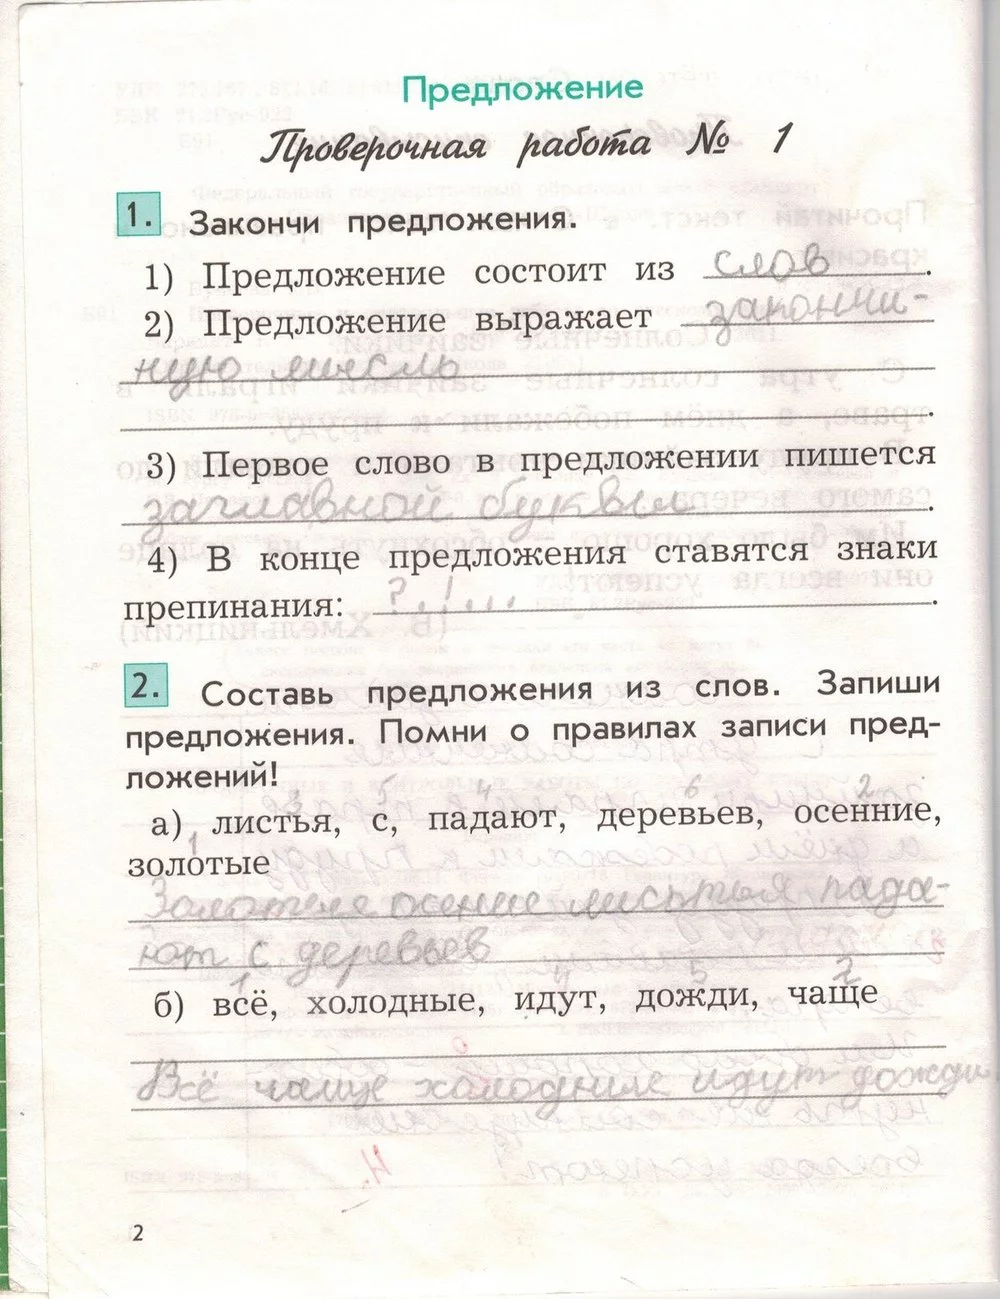 Предложение
Проверочная работа № 1
1. Закончи предложения.
1) Предложение состоит из слов.
2) Предложение выражает закончи-
ную мысль
.
3) Первое слово в предложении пишется
заглавной буквы.
4) В конце предложения ставятся знаки
препинания: ? . ! ... .
2. Составь предложения из слов. Запиши
предложения. Помни о правилах записи пред-
ложений!
3 5 4 6 2
а) листья, с, падают, деревьев, осенние,
1
золотые
Золотые осение листья пада-
ют с деревьев
1 4 5 2
б) всё, холодные, идут, дожди, чаще
Всё чаще холодные идут дожди
2